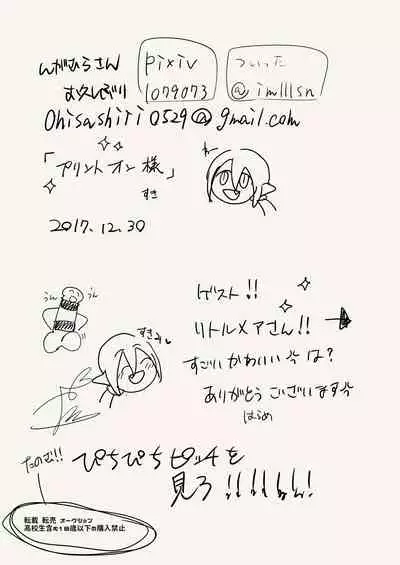 んがむらさん
お久しぶり
pixiv
1079073
ついった
@imlllsn
Ohisashiri0529@gmail.com
「プリントオン様」
すき
2017.12.30
うん
うん
すき
ゲスト!!
リトルメアさん!!
すごいかわいい
は?
ありがとうございます
はらめ
たのむ!!
ぴちぴちピッチを
見ろ!!!!
転載 転売 オークション
高校生含む18歳以下の購入禁止